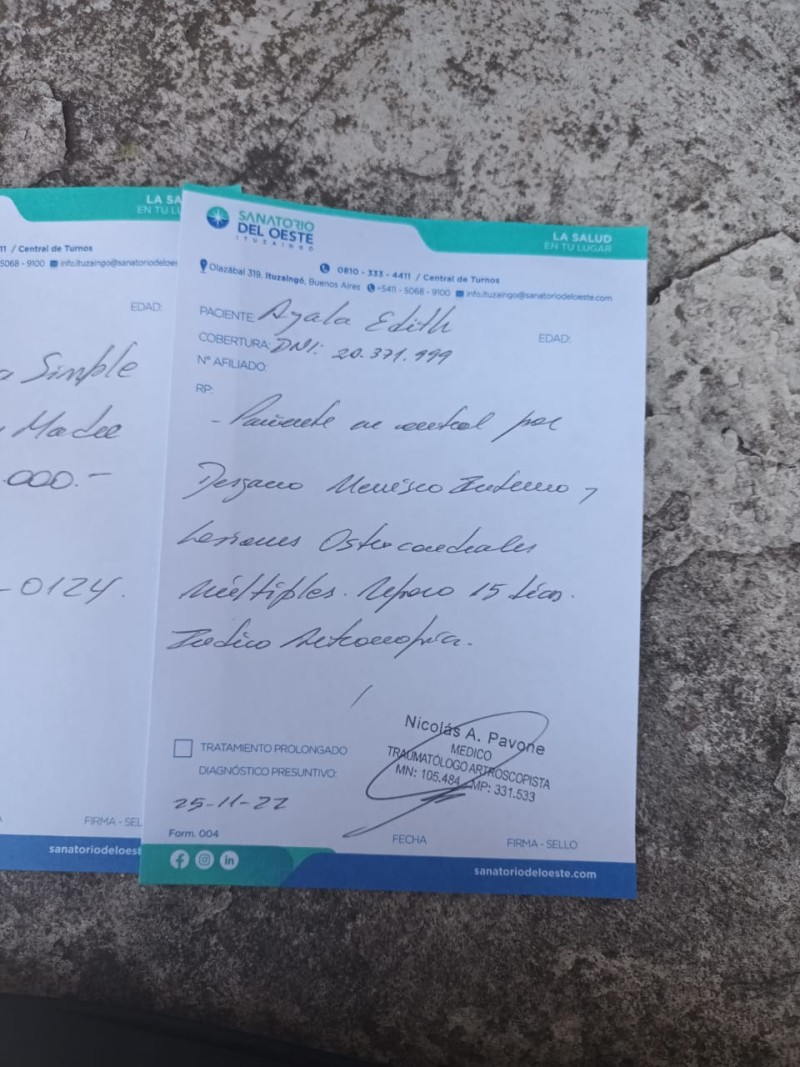 LA SA
EN TU LU
11 / Central de Turnos
5068 - 9100 info.ituzaingo@sanatoriodeloes
EDAD:
Simple
Madre
.000.-
-0124.
FIRMA - SEL
sanatoriodeloest
SANATORIO
DEL OESTE
ITUZAINGÓ
LA SALUD
EN TU LUGAR
Olazábal 319, Ituzaingó, Buenos Aires
0810 - 333 - 4411 / Central de Turnos
+5411 - 5068 - 9100 info.ituzaingo@sanatoriodeloeste.com
PACIENTE: Ayala Edith EDAD:
COBERTURA: DNI: 20.371.999
N° AFILIADO:
RP:
- Paciente en control por
Desgarro Menisco Interno y
Lesiones Osteocondrales
Múltiples. Reposo 15 días.
Indico Artroscopía.
TRATAMIENTO PROLONGADO
DIAGNÓSTICO PRESUNTIVO:
25-11-22
Nicolás A. Pavone
MEDICO
TRAUMATÓLOGO ARTROSCOPISTA
MN: 105.484 MP: 331.533
Form. 004
FECHA
FIRMA - SELLO
sanatoriodeloeste.com